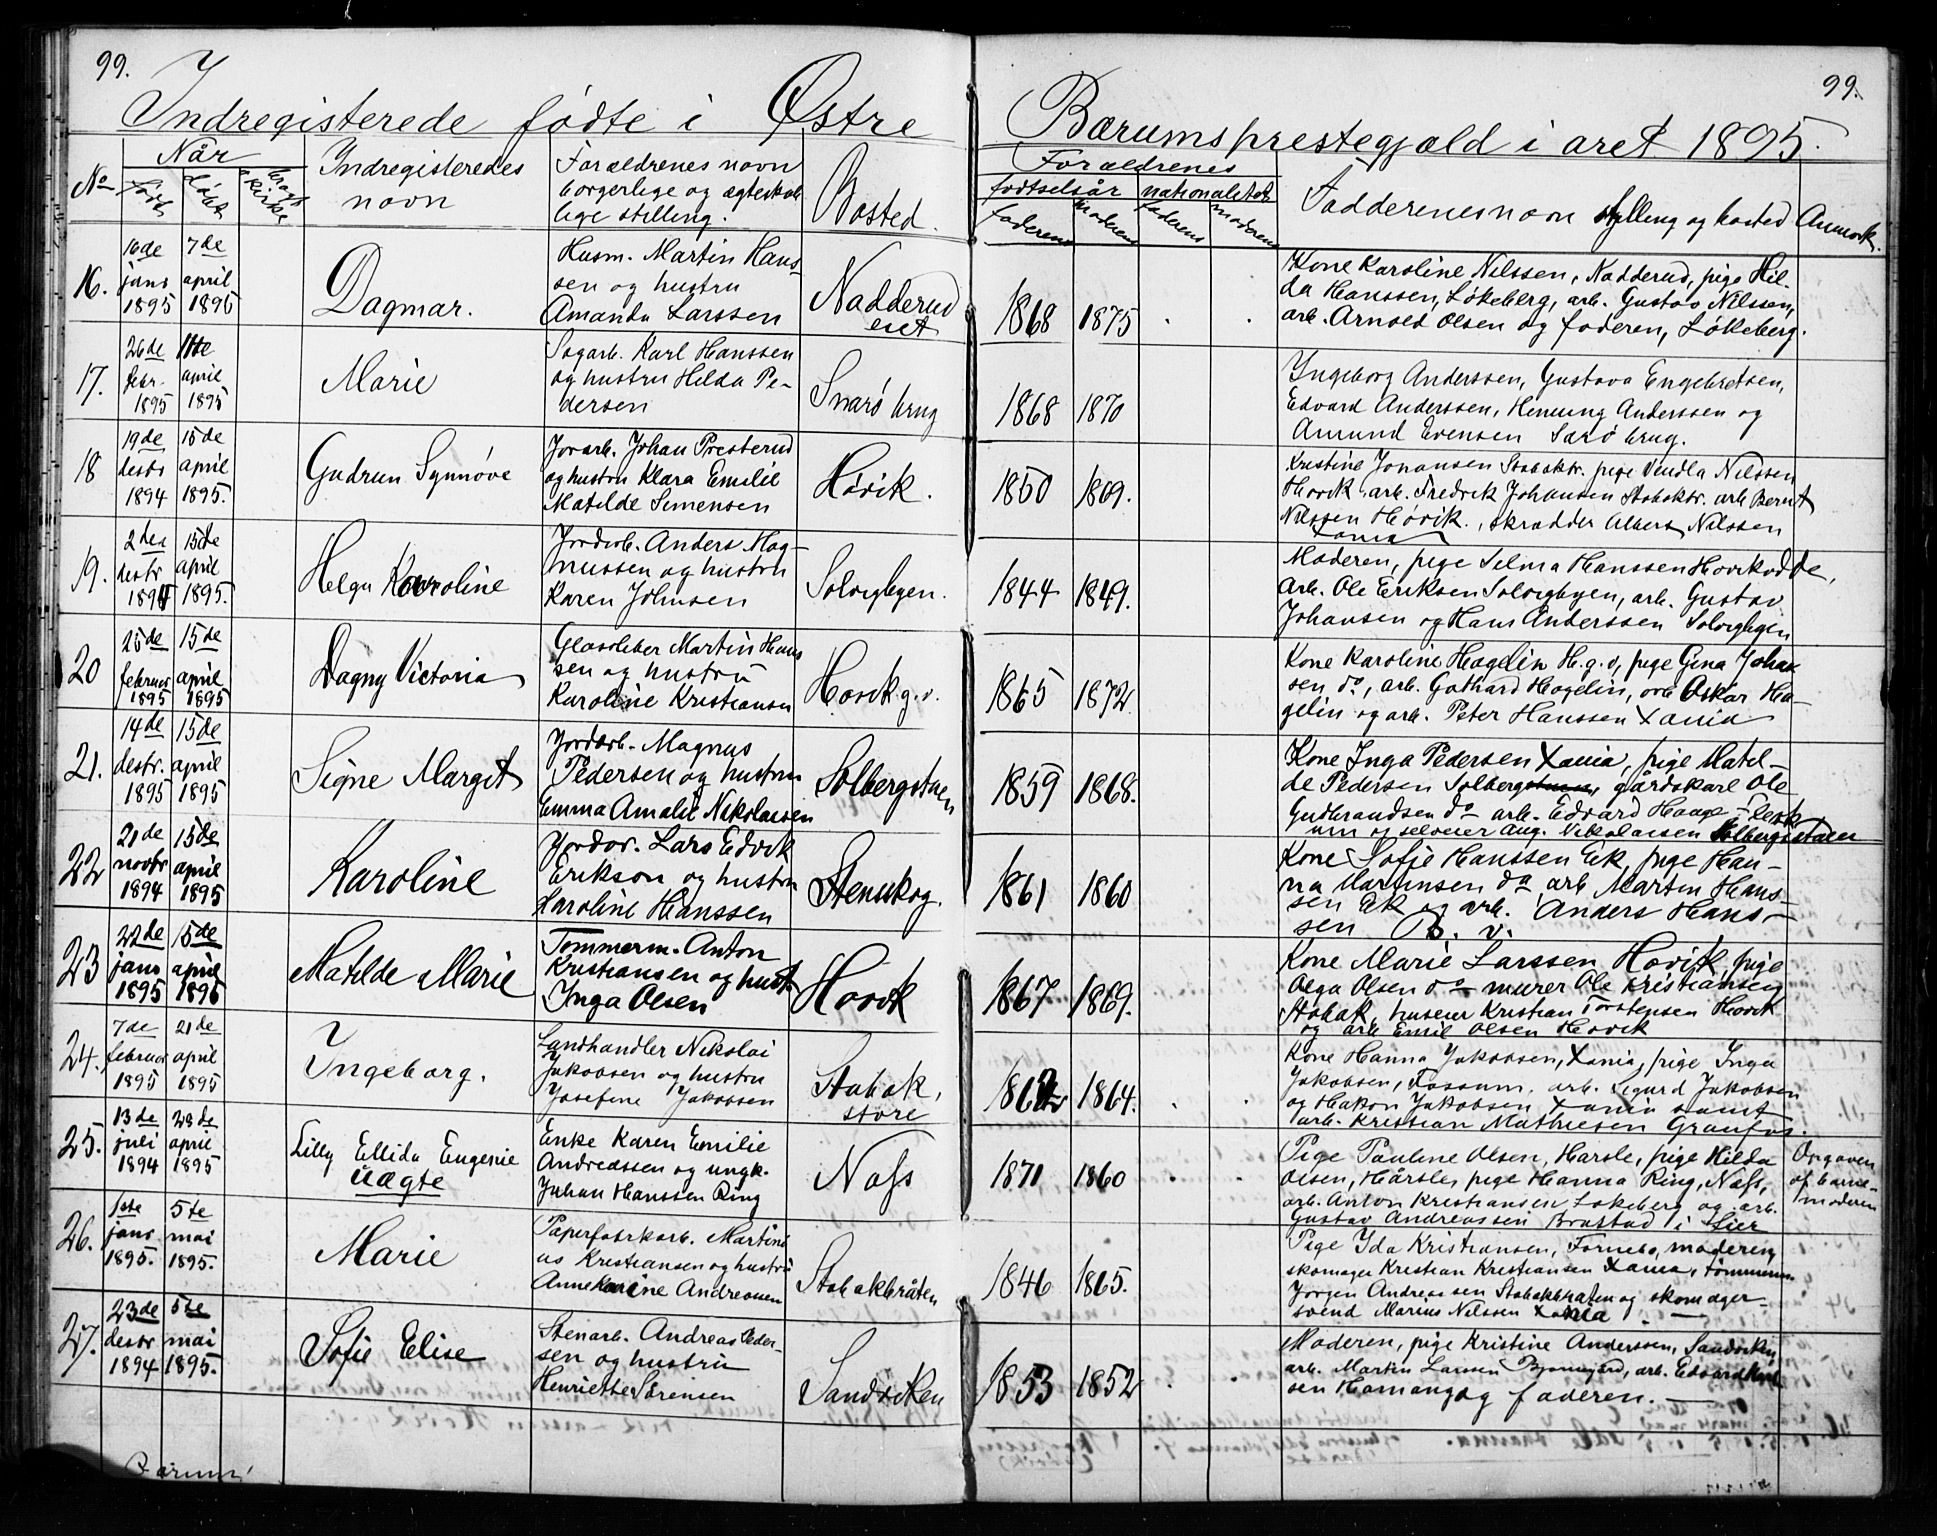 99.
99.
Indregisterede fødte i Østre Bærums prestegjæld i året 1895.
No
Når
født
døbt
Indregisteredes
navn
Forældrenes navn
borgerlige og ægteskab
lige stilling.
Bosted.
Forældrenes
fødtselsår
nationalitet
faderens
moderens
faderens
moderens
Fadderenes navn stylling og bosted
Anmerk.
16.
16de
janr
1895
7de
april
1895
Dagmar.
Husm. Martin Hans-
sen og hustru
Amanda Larssen
Nadderud
eiet
1868
1875
Kone Karoline Nilssen, Nadderud, pige Hil-
da Hanssen, Løkeberg, arb. Gustav Nilssen,
arb. Arnold Olsen og faderen, Løkeberg.
17.
26de
febr.
1895
11te
april
1895
Marie
Sagarb. Karl Hanssen
og hustru Hilda Pe-
dersen
Snarø brug
1868
1870
Ingeborg Anderssen, Gustava Engebretsen,
Edvard Anderssen, Henning Anderssen og
Amund Evensen Sarø brug.
18
19de
desbr
1894
15de
april
1895.
Gudrun Synnøve
Jorarb. Johan Presterud
og hustru Klara Emilie
Matilde Simensen
Høvik.
1850
1869.
Kristine Johansen Stabækbr. pige Vendla Nilssen
Høvik, arb. Fredrik Johansen Stabækbr. arb Bernt
Nilssen Høvik., skrædder Albert Nilssen
Xania
19.
2den
desbr
1894
15de
april
1895.
Helga Karoline
Jordarb. Anders Mag-
nussen og hustru
Karen Johnsen
Solvigbygen.
1844
1849.
Moderen, pige Selma Hanssen Høvikodde,
Arb. Ole Eriksen Solvigbygen, arb. Gustav
Johansen og Hans Anderssen Solvigbygen
20
25de
februar
1895
15de
april
1895
Dagny Victoria
Glassliber Martin Hans
sen og hustru
Karoline Kristiansen
Høvik g. v.
1865
1872
Kone Karoline Hagelin H. g. v, pige Gina Johan
sen do, arb. Gothard Hagelin, arb Oskar Ha-
gelin og arb. Peter Hanssen Xania
21.
14de
destr.
1895
15de
april
1895
Signe Margit
Jordarb. Magnus
Pedersen og hustru
Emma Amalie Nikolaisen
Solbergstuen
1859
1868.
Kone Inga Pedersen Xania, pige Matel-
de Pedersen Solbergstuen, gårdskarl Ole
Gudbrandsen do arb. Edvard Haage Flesk
um og selveier Aug. Nikolaisen Solbergstuen
22
21de
novbr
1894
15de
april
1895
Karoline
Jordar. Lars Edvik
Erikson og hustru
Karoline Hanssen
Stenskog.
1861
1860
Kone Sofie Hanssen Eik, pige Han-
na Martinsen do arb Martin Hans-
sen Ek og arb. Anders Hans-
sen B. v.
23
22de
janr
1895
15de
april
1895
Matilde Marie
Tømmerm. Anton
Kristiansen og hust
Inga Olsen
Høvik
1867
1869.
Kone Marie Larssen Høvik pige
Olga Olsen do murer Ole Kristiansen
Stabæk, huseier Kristian Torstensen Høvik
og arb Emil Olsen Høvik
24.
7de
februar
1895
21de
april
1895
Ingeborg.
Landhandler Nikolai
Jakobsen og hustru
Josefine Jakobsen
Stabæk,
store
1862
1864.
Kone Hanna Jakobsen, Xania, pige Inga
Jakobsen, Fossum, arb. Sigurd Jakobsen
og Håkon Jakobsen Xania samt
arb. Kristian Mathiesen Granfos.
25.
13de
juli
1894
28de
april
1895
Lilly Ellida Eugenie
Uægte
Enke Karen Emilie
Andreassen og ungk.
Johan Hanssen Ring
Næss
1871
1860
Pige Pauline Olsen, Harsle, pige Hilda
Olsen, Hårsle, pige Hanna Ring, Næss,
arb. Anton Kristiansen Løkeberg og arb.
Gustav Andreassen Brastad i Lier
Opgaven
af barne-
moderen
26.
1ste
janr
1895.
5te
mai
1895.
Marie
Papirfabrkarb. Martini
us Kristiansen og hustru
Anne Karine Andreassen
Stabækbråten
1846
1865.
Pige Ida Kristiansen, Fornebo, moderen
skomager Kristian Kristiansen Xania, tømmerm.
Jørgen Andreassen Stabækbråten og skomager-
svend Marius Nilssen Xania.
27.
23de
desbr
1894
5te
mai
1895.
Sofie Elise
Stenarb. Andreas Peder-
sen og hustru
Henriette Sørensen
Sandviken
1853
1852
Moderen, pige Kristine Anderssen, Sandviken,
arb. Martin Larssen Bjørnegård, arb. Edvard
sen Hamang og faderen.
Bærums